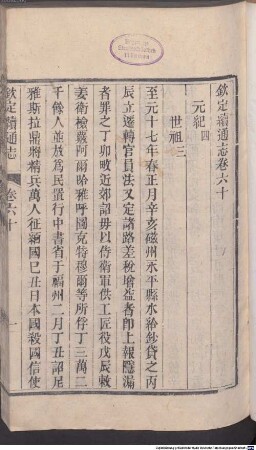 欽定續通志卷六十
元紀四
世祖三
至元十七年春正月辛亥磁州永平縣水給鈔貸之丙
辰立遷轉官員法又定諸路差稅增益者卽上報隱漏
者罪之丁卯畋近郊詔毋以侍衛軍供工匠役戊辰敕
姜衛檢覈阿爾哈雅呼圖克特穆爾等所俘丁三萬二
千餘人並放為民置行中書省于福州二月丁丑詔尼
雅斯拉鼎將精兵萬人征緬國巳丑日本國殺國信使
欽定續通志
卷六十
一